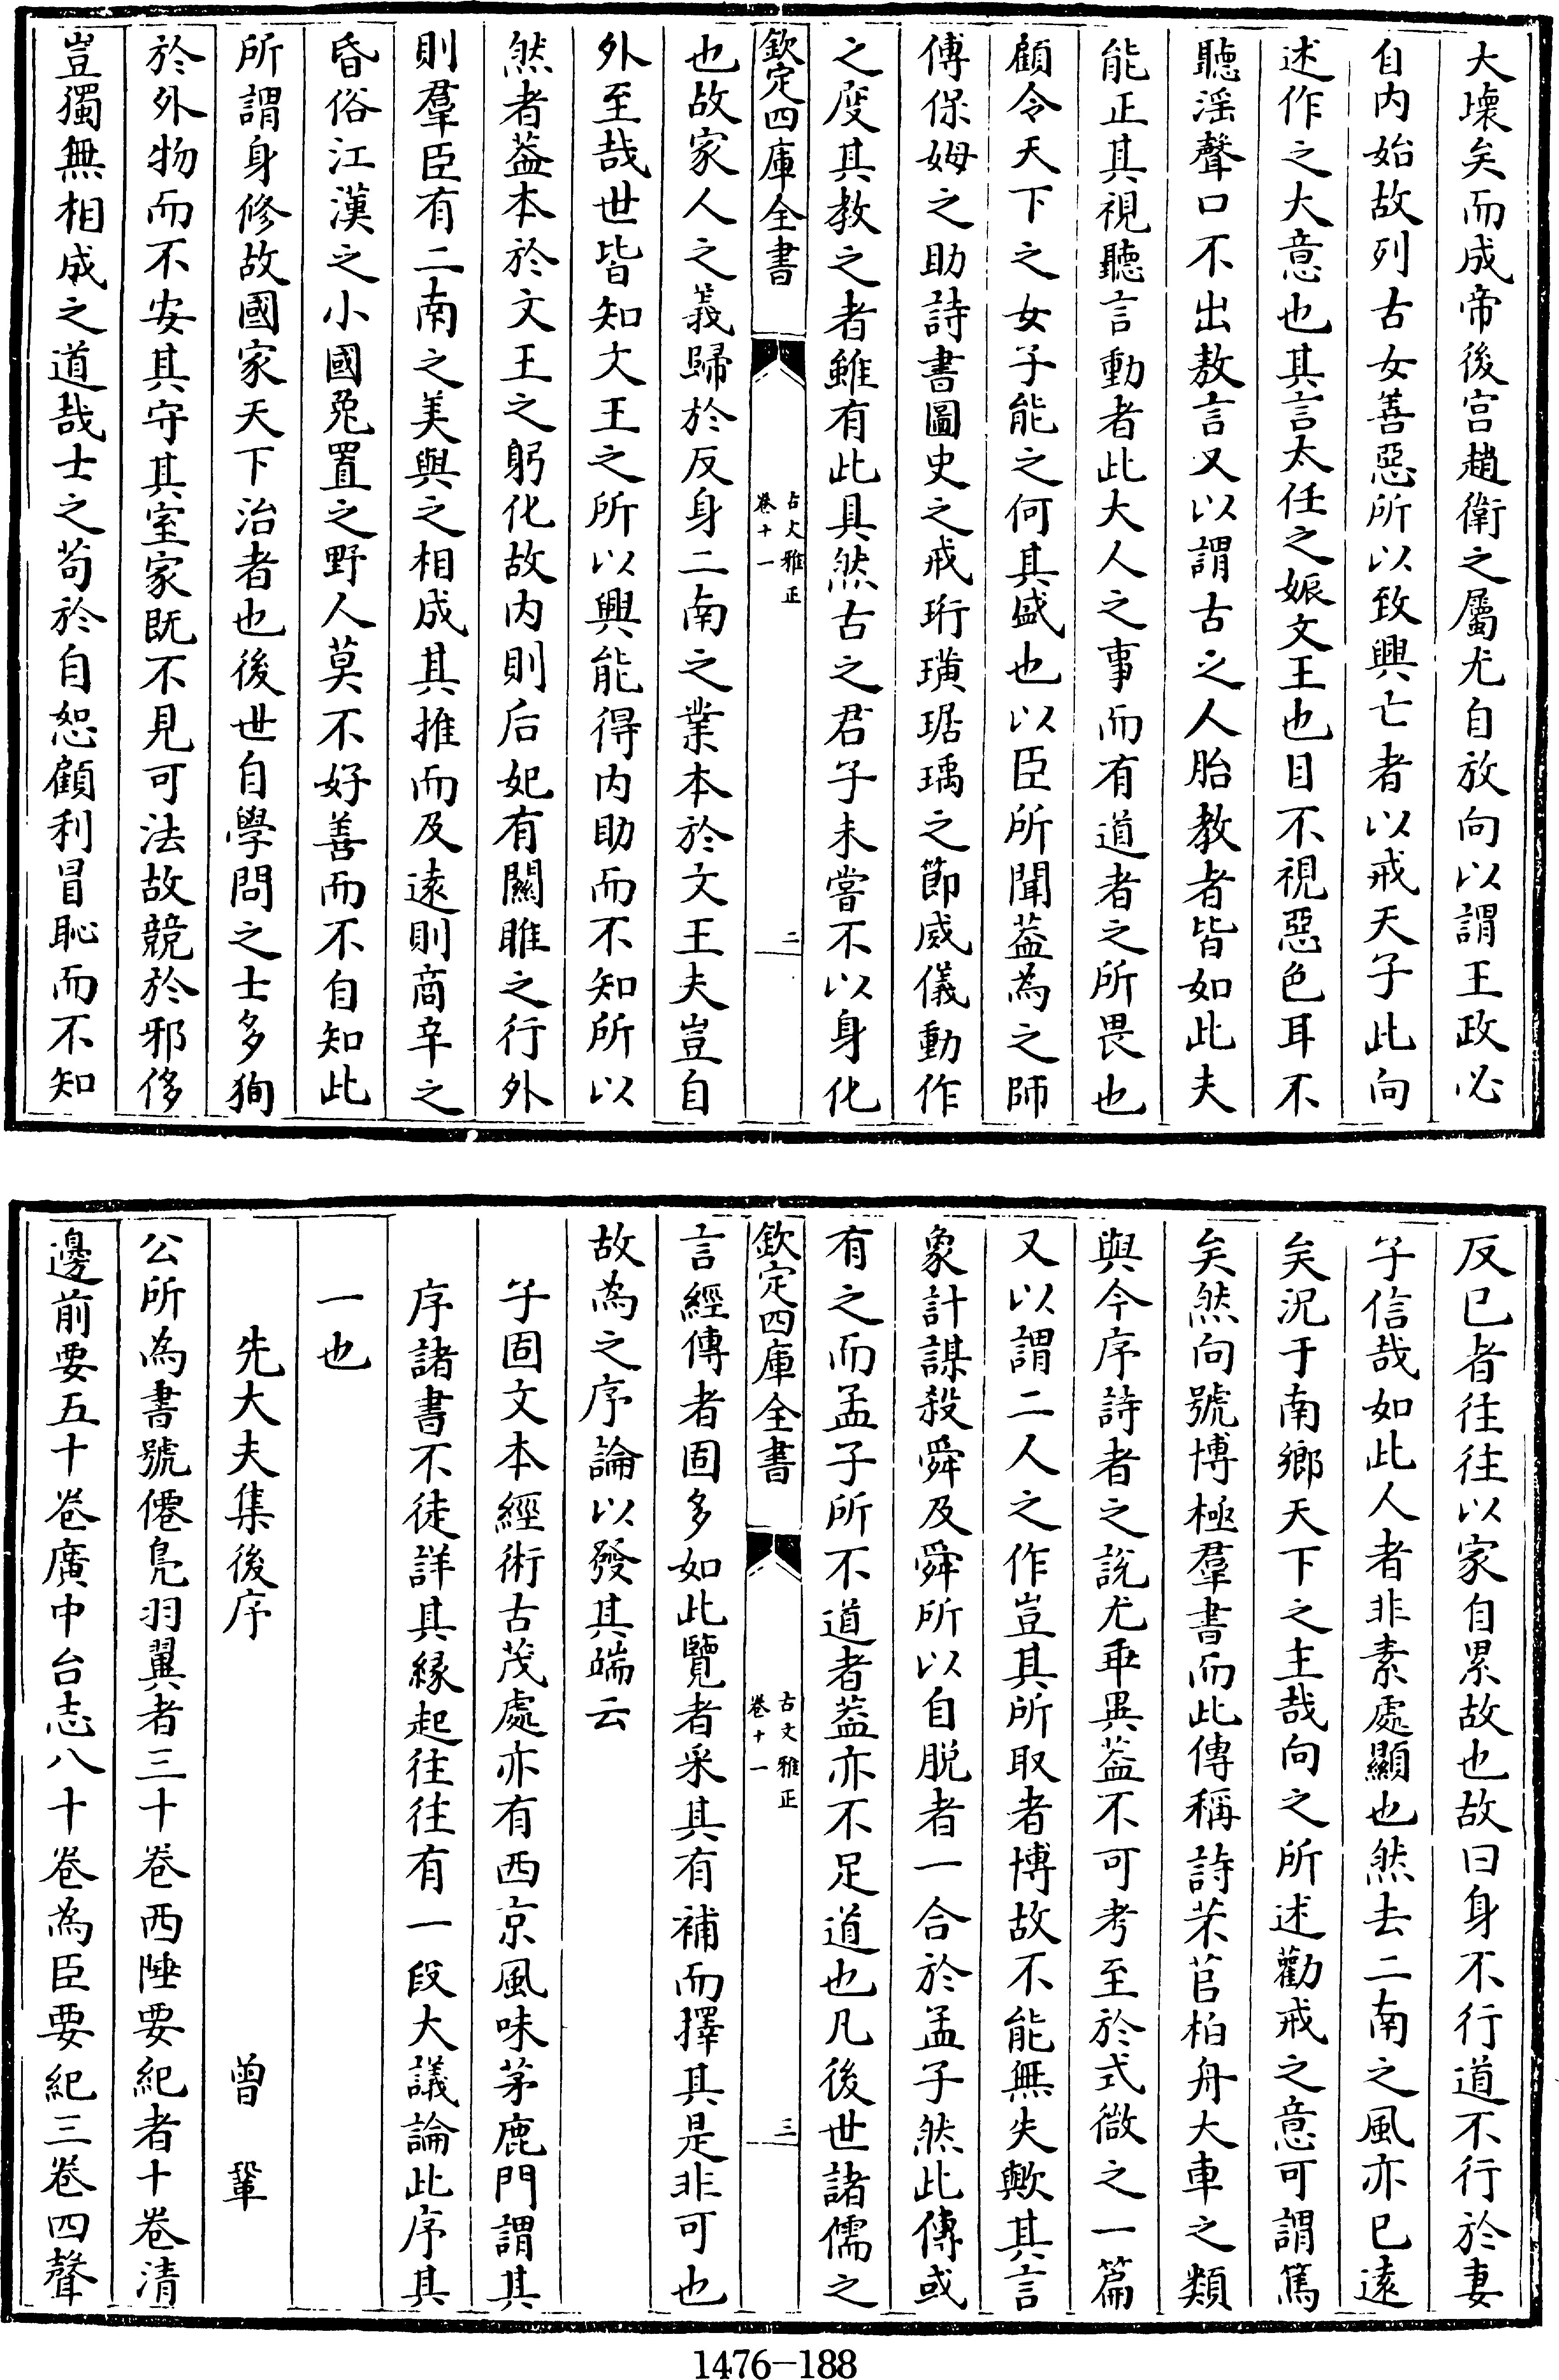 大壞矣而成帝後宫趙衛之屬尤自放向以謂王政必
自内始故列古女善惡所以致興亡者以戒天子此向
述作之大意也其言太任之娠文王也目不視惡色耳不
聽滛聲口不出敖言又以謂古之人胎教者皆如此夫
能正其視聽言動者此大人之事而有道者之所畏也
顧令天下之女子能之何其盛也以臣所聞葢為之師
傅保姆之助詩書圖史之戒珩璜琚瑀之節威儀動作
之度其教之者雖有此具然古之君子未嘗不以身化
欽定四庫全書
古文雅正
卷十一
二
也故家人之義歸於反身二南之業本於文王夫豈自
外至哉世皆知文王之所以興能得内助而不知所以
然者葢本於文王之躬化故内則后妃有關雎之行外
則羣臣有二南之美與之相成其推而及逺則商辛之
昏俗江漢之小國兎罝之野人莫不好善而不自知此
所謂身修故國家天下治者也後世自學問之士多狥
於外物而不安其守其室家既不見可法故競於邪侈
豈獨無相成之道哉士之苟於自恕顧利冒恥而不知
反已者往往以家自累故也故曰身不行道不行於妻
子信哉如此人者非素處顯也然去二南之風亦已逺
矣況于南鄉天下之主哉向之所述勸戒之意可謂篤
矣然向號博極羣書而此傳稱詩芣苢柏舟大車之類
與今序詩者之說尤乖異葢不可考至於式微之一篇
又以謂二人之作豈其所取者博故不能無失歟其言
象計謀殺舜及舜所以自脱者一合於孟子然此傳或
有之而孟子所不道者葢亦不足道也凡後世諸儒之
欽定四庫全書
古文雅正
卷十一
三
言經傳者固多如此覽者采其有補而擇其是非可也
故為之序論以發其端云
子固文本經術古茂處亦有西京風味茅鹿門謂其
序諸書不徒詳其縁起往往有一段大議論此序其
一也
先大夫集後序 曾鞏
公所為書號僊鳬羽翼者三十卷西陲要紀者十卷清
邊前要五十卷廣中台志八十卷為臣要紀三卷四聲
1476-188